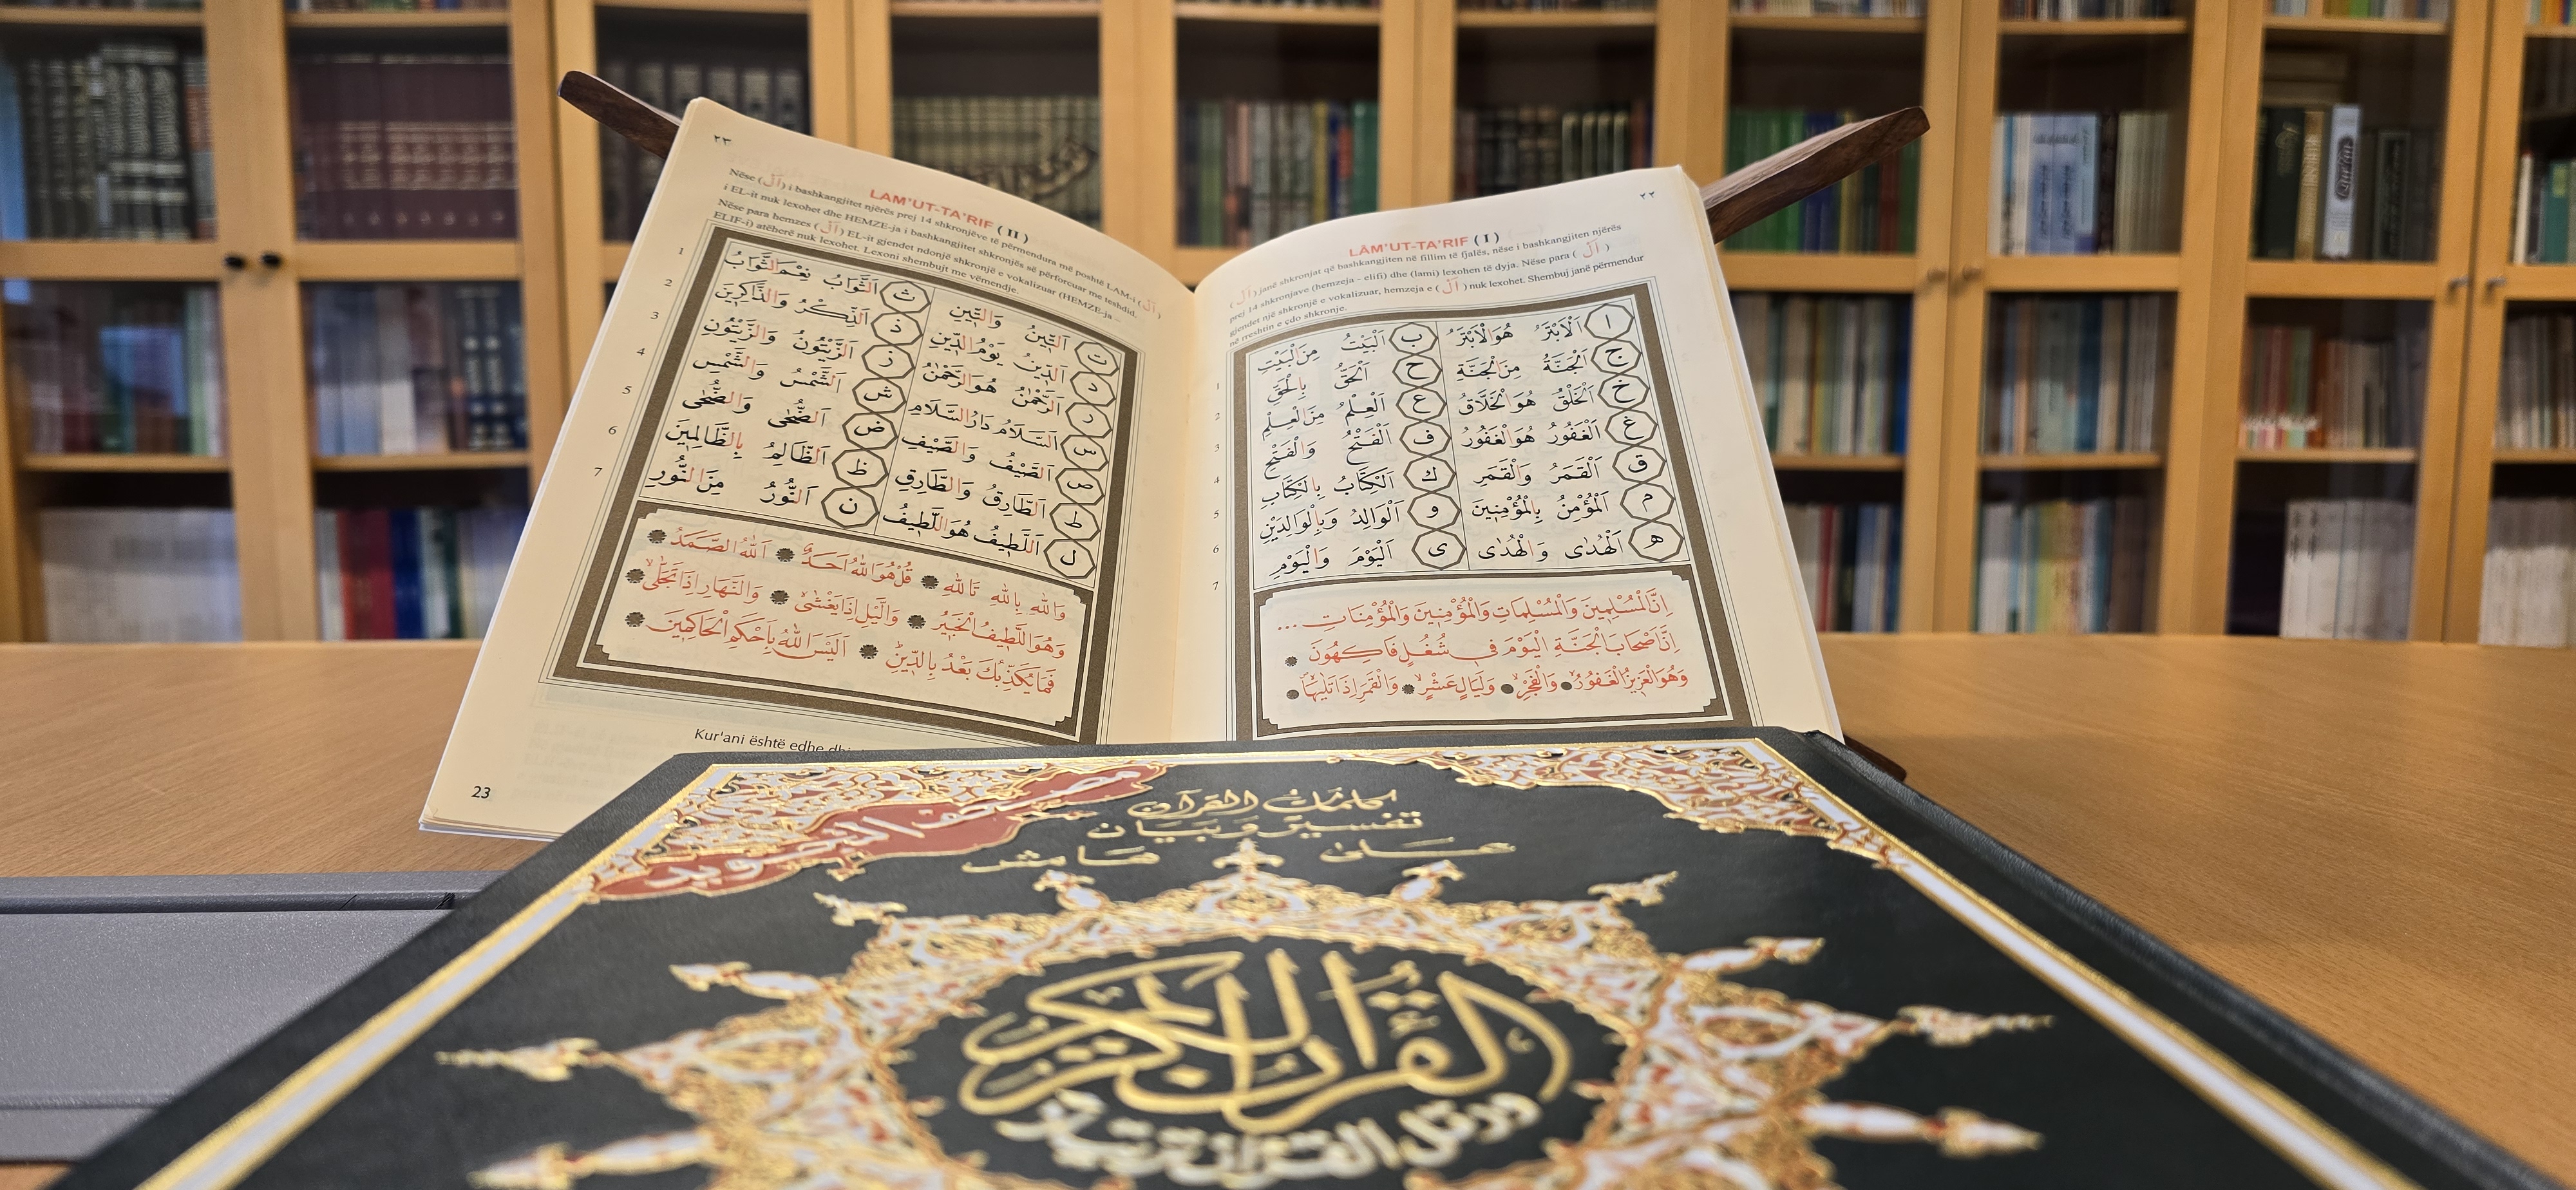 ٢٣
LAM'UT-TA'RIF ( II )
Nëse (اَلْ) i bashkangjitet njërës prej 14 shkronjëve të përmendura më poshtë LAM-i (اَلْ)
i EL-it nuk lexohet dhe HEMZE-ja i bashkangjitet shkronjës së përforcuar me teshdid.
Nëse para hemzes (اَلْ) EL-it gjendet ndonjë shkronjë e vokalizuar (HEMZE-ja –
ELIF-i) atëherë nuk lexohet. Lexoni shembujt me vëmendje.
1 ت اَلتِّينُ وَالتِّينِ ث اَلثَّوَابُ نِعْمَ الثَّوَابُ
2 د اَلدِّينُ يَوْمُ الدِّينِ ذ اَلذِّكْرُ وَالذَّاكِرِينَ
3 ر اَلرَّحْمٰنُ هُوَ الرَّحْمٰنُ ز اَلزَّيْتُونُ وَالزَّيْتُونِ
4 س اَلسَّلَامُ دَارُ السَّلَامِ ش اَلشَّمْسُ وَالشَّمْسِ
5 ص اَلصَّيْفُ وَالصَّيْفِ ض اَلضُّحٰى وَالضُّحٰى
6 ط اَلطَّارِقُ وَالطَّارِقِ ظ اَلظَّالِمُ بِالظَّالِمِينَ
7 ل اَللَّطِيفُ هُوَ اللَّطِيفُ ن اَلنُّورُ مِنَ النُّورِ
وَاللّٰهِ بِاللّٰهِ تَاللّٰهِ ۝ قُلْ هُوَ اللّٰهُ اَحَدٌ ۝ اَللّٰهُ الصَّمَدُ ۝
وَهُوَ اللَّطِيفُ الْخَبِيرُ ۝ وَالَّيْلِ اِذَا يَغْشٰى ۝ وَالنَّهَارِ اِذَا تَجَلّٰى ۝
فَمَا يُكَذِّبُكَ بَعْدُ بِالدِّينِ ۝ اَلَيْسَ اللّٰهُ بِاَحْكَمِ الْحَاكِمِينَ ۝
Kur'ani është edhe
23
٢٢
LÂM'UT-TA'RIF ( I )
(اَلْ) janë shkronjat që bashkangjiten në fillim të fjalës, nëse i bashkangjiten njërës
prej 14 shkronjave (hemzeja - elifi) dhe (lami) lexohen të dyja. Nëse para (اَلْ)
gjendet një shkronjë e vokalizuar, hemzeja e (اَلْ) nuk lexohet. Shembuj janë përmendur
në rreshtin e çdo shkronje.
1 ا اَلْاَبْتَرُ هُوَ الْاَبْتَرُ ب اَلْبَيْتُ مِنَ الْبَيْتِ
2 ج اَلْجَنَّةُ مِنَ الْجَنَّةِ ح اَلْحَقُّ بِالْحَقِّ
3 خ اَلْخَلْقُ هُوَ الْخَلَّاقُ ع اَلْعِلْمُ مِنَ الْعِلْمِ
4 غ اَلْغَفُورُ هُوَ الْغَفُورُ ف اَلْفَتْحُ وَالْفَتْحِ
5 ق اَلْقَمَرُ وَالْقَمَرِ ك اَلْكِتَابُ بِالْكِتَابِ
6 م اَلْمُؤْمِنُ بِالْمُؤْمِنِينَ و اَلْوَالِدُ وَبِالْوَالِدَيْنِ
7 ه اَلْهُدٰى وَالْهُدٰى ى اَلْيَوْمَ وَالْيَوْمِ
اِنَّ الْمُسْلِمِينَ وَالْمُسْلِمَاتِ وَالْمُؤْمِنِينَ وَالْمُؤْمِنَاتِ ...
اِنَّ اَصْحَابَ الْجَنَّةِ الْيَوْمَ فِي شُغُلٍ فَاكِهُونَ ۝
وَهُوَ الْعَزِيزُ الْغَفُورُ ۝ وَالْفَجْرِ ۝ وَلَيَالٍ عَشْرٍ ۝ وَالْقَمَرِ اِذَا تَلٰيهَا ۝
مصحف التجويد
كلمات القرآن
تفسير وبيان
على هامش
القرآن الكريم
ورتل القرآن ترتيلا